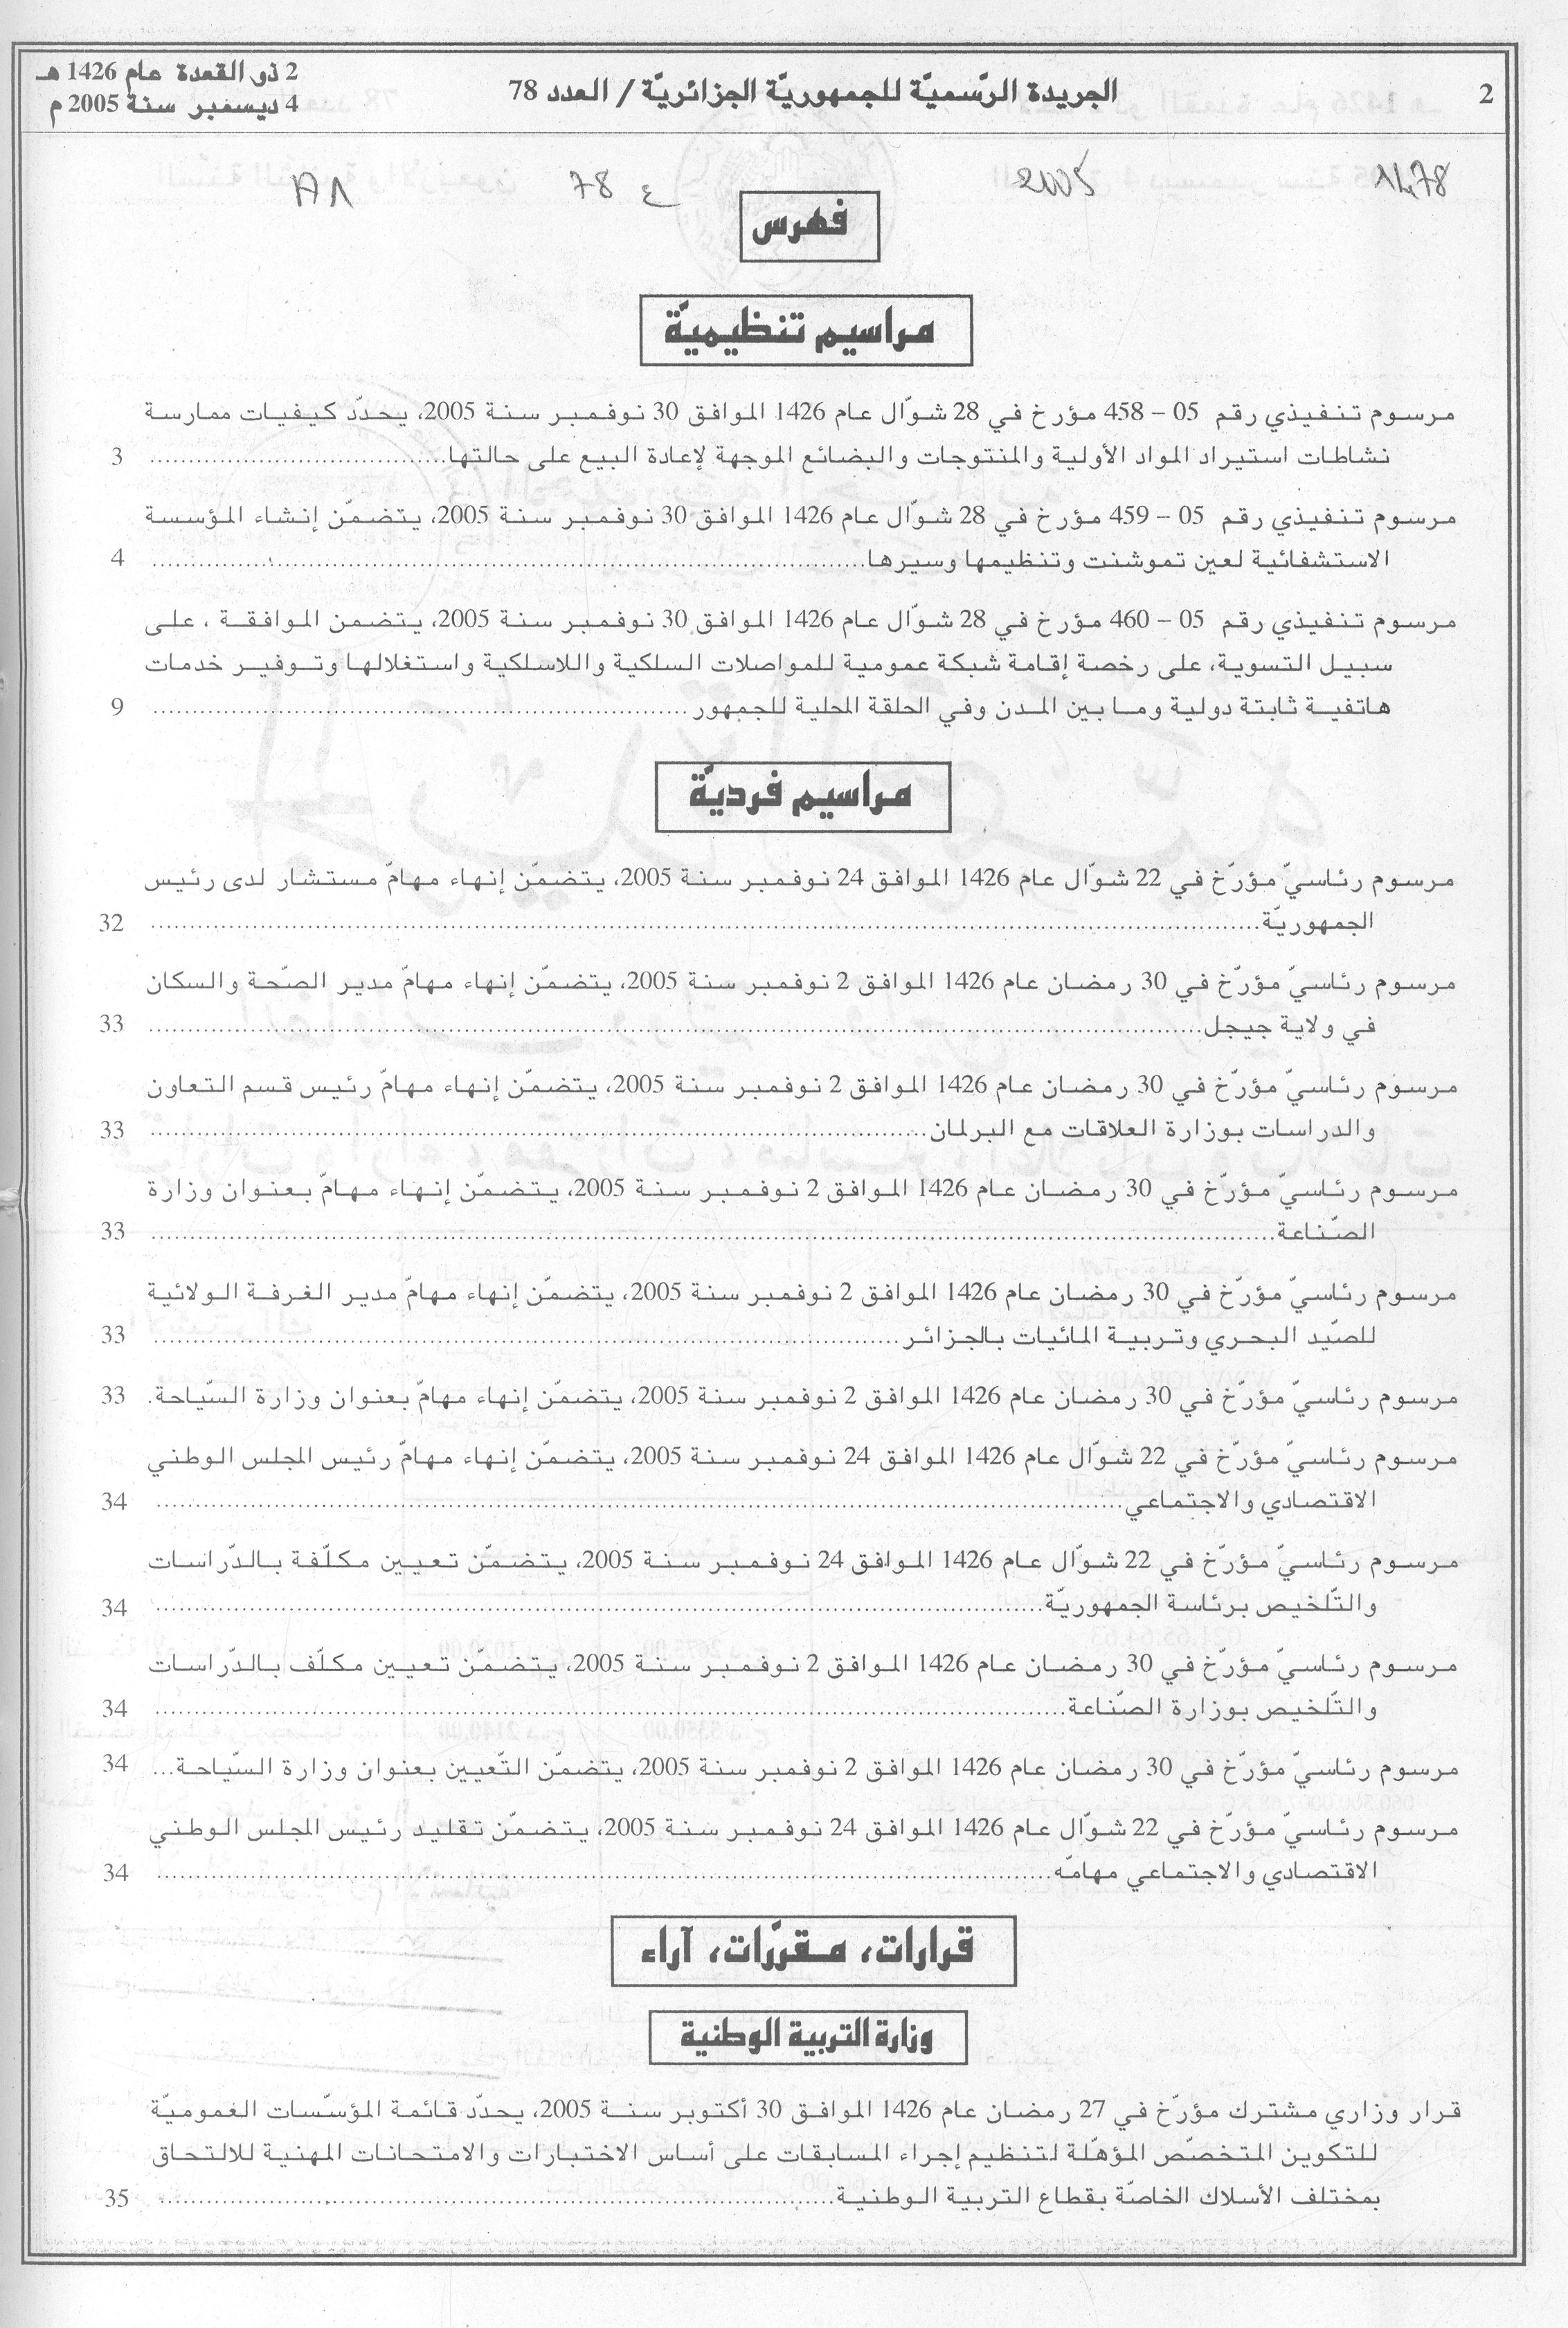 2
الجريدة الرّسميّة للجمهوريّة الجزائريّة / العدد 78
2 ذو القعدة عام 1426 هـ
4 ديسمبر سنة 2005 م
1478 2005 ع 78
فهرس
مراسيم تنظيميّة
مرسوم تنفيذي رقم 05 – 458 مؤرخ في 28 شوّال عام 1426 الموافق 30 نوفمبر سنة 2005، يحدّد كيفيات ممارسة
نشاطات استيراد المواد الأولية والمنتوجات والبضائع الموجهة لإعادة البيع على حالتها........................ 3
مرسوم تنفيذي رقم 05 – 459 مؤرخ في 28 شوّال عام 1426 الموافق 30 نوفمبر سنة 2005، يتضمّن إنشاء المؤسسة
الاستشفائية لعين تموشنت وتنظيمها وسيرها........................ 4
مرسوم تنفيذي رقم 05 – 460 مؤرخ في 28 شوّال عام 1426 الموافق 30 نوفمبر سنة 2005، يتضمن الموافقة ، على
سبيل التسوية، على رخصة إقامة شبكة عمومية للمواصلات السلكية واللاسلكية واستغلالها وتوفير خدمات
هاتفية ثابتة دولية وما بين المدن وفي الحلقة المحلية للجمهور........................ 9
مراسيم فرديّة
مرسوم رئاسيّ مؤرّخ في 22 شوّال عام 1426 الموافق 24 نوفمبر سنة 2005، يتضمّن إنهاء مهامّ مستشار لدى رئيس
الجمهوريّة........................ 32
مرسوم رئاسيّ مؤرّخ في 30 رمضان عام 1426 الموافق 2 نوفمبر سنة 2005، يتضمّن إنهاء مهامّ مدير الصّحة والسكان
في ولاية جيجل........................ 33
مرسوم رئاسيّ مؤرّخ في 30 رمضان عام 1426 الموافق 2 نوفمبر سنة 2005، يتضمّن إنهاء مهامّ رئيس قسم التعاون
والدراسات بوزارة العلاقات مع البرلمان........................ 33
مرسوم رئاسيّ مؤرّخ في 30 رمضان عام 1426 الموافق 2 نوفمبر سنة 2005، يتضمّن إنهاء مهامّ بعنوان وزارة
الصّناعة........................ 33
مرسوم رئاسيّ مؤرّخ في 30 رمضان عام 1426 الموافق 2 نوفمبر سنة 2005، يتضمّن إنهاء مهامّ مدير الغرفة الولائية
للصّيد البحري وتربية المائيات بالجزائر........................ 33
مرسوم رئاسيّ مؤرّخ في 30 رمضان عام 1426 الموافق 2 نوفمبر سنة 2005، يتضمّن إنهاء مهامّ بعنوان وزارة السّياحة. 33
مرسوم رئاسيّ مؤرّخ في 22 شوّال عام 1426 الموافق 24 نوفمبر سنة 2005، يتضمّن إنهاء مهامّ رئيس المجلس الوطني
الاقتصادي والاجتماعي........................ 34
مرسوم رئاسيّ مؤرّخ في 22 شوّال عام 1426 الموافق 24 نوفمبر سنة 2005، يتضمّن تعيين مكلّفة بالدّراسات
والتّلخيص برئاسة الجمهوريّة........................ 34
مرسوم رئاسيّ مؤرّخ في 30 رمضان عام 1426 الموافق 2 نوفمبر سنة 2005، يتضمّن تعيين مكلّف بالدّراسات
والتّلخيص بوزارة الصّناعة........................ 34
مرسوم رئاسيّ مؤرّخ في 30 رمضان عام 1426 الموافق 2 نوفمبر سنة 2005، يتضمّن التّعيين بعنوان وزارة السّياحة... 34
مرسوم رئاسيّ مؤرّخ في 22 شوّال عام 1426 الموافق 24 نوفمبر سنة 2005، يتضمّن تقليد رئيس المجلس الوطني
الاقتصادي والاجتماعي مهامّه........................ 34
قرارات، مقرّرات، آراء
وزارة التربية الوطنية
قرار وزاري مشترك مؤرّخ في 27 رمضان عام 1426 الموافق 30 أكتوبر سنة 2005، يحدّد قائمة المؤسّسات العموميّة
للتكوين المتخصّص المؤهّلة لتنظيم إجراء المسابقات على أساس الاختبارات والامتحانات المهنية للالتحاق
بمختلف الأسلاك الخاصّة بقطاع التربية الوطنية........................ 35